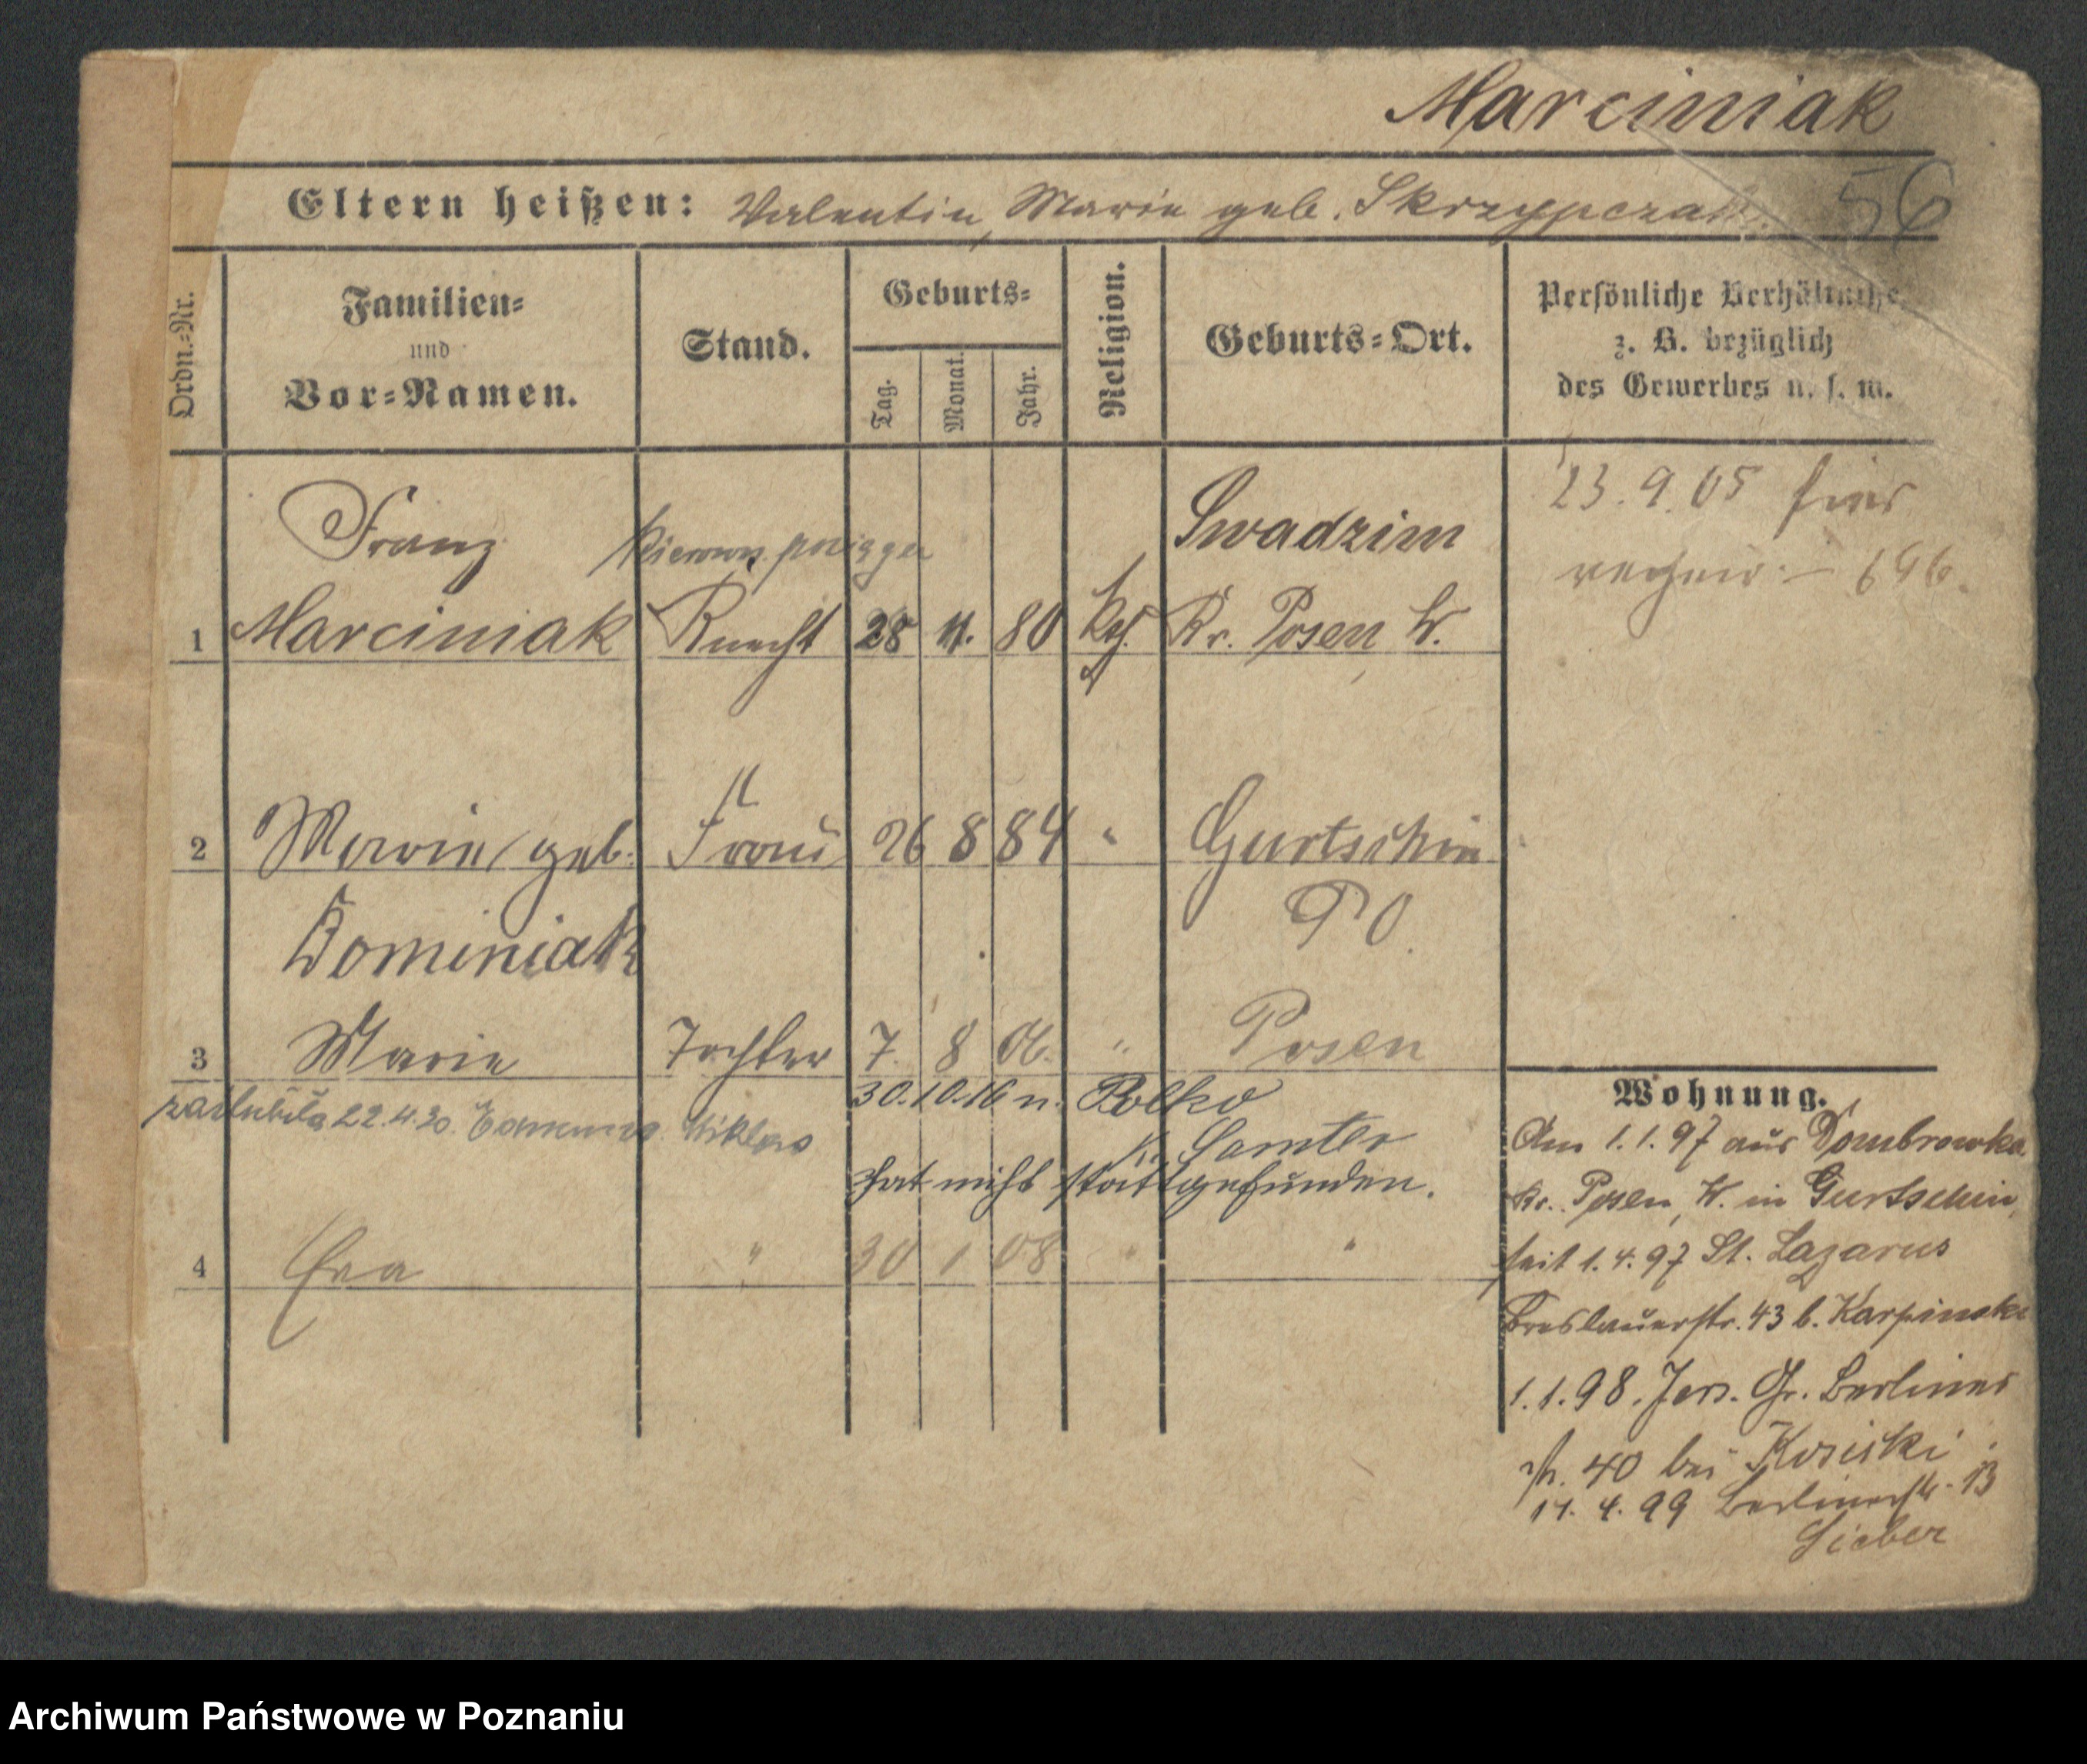 Marciniak
56
Eltern heißen: Valentin, Marie geb. Skrzypczak
Ordn.-Nr.
Familien-
und
Vor-Namen.
Stand.
Geburts-
Tag.
Monat.
Jahr.
Religion.
Geburts-Ort.
Persönliche Verhältnisse,
z. B. bezüglich
des Gewerbes u. s. w.
Franz Swadzim 23.9.05 hier
1 Marciniak Knecht 28 11. 80 kath. Kr. Posen W.
2 Marie geb. Frau 26 8 84 " Gurtschin
Dominiak P O.
3 Marie Tochter 7. 8 06. " Posen
30.10.16 n. Polko
zaślubiła 22.4.30.
K. Samter
hat nicht stattgefunden.
4 Eva " 30 1 08 " "
Wohnung.
Am 1.1.97 aus Dombrowka
Kr. Posen, W. in Gurtschin,
seit 1.4.97 St. Lazarus
Breslauerstr. 43 b. Karpinski
1.1.98. Jers. Gr. Berliner
str. 40 bei
11. 4. 99 Berlinerstr. 13
Sieber
Archiwum Państwowe w Poznaniu